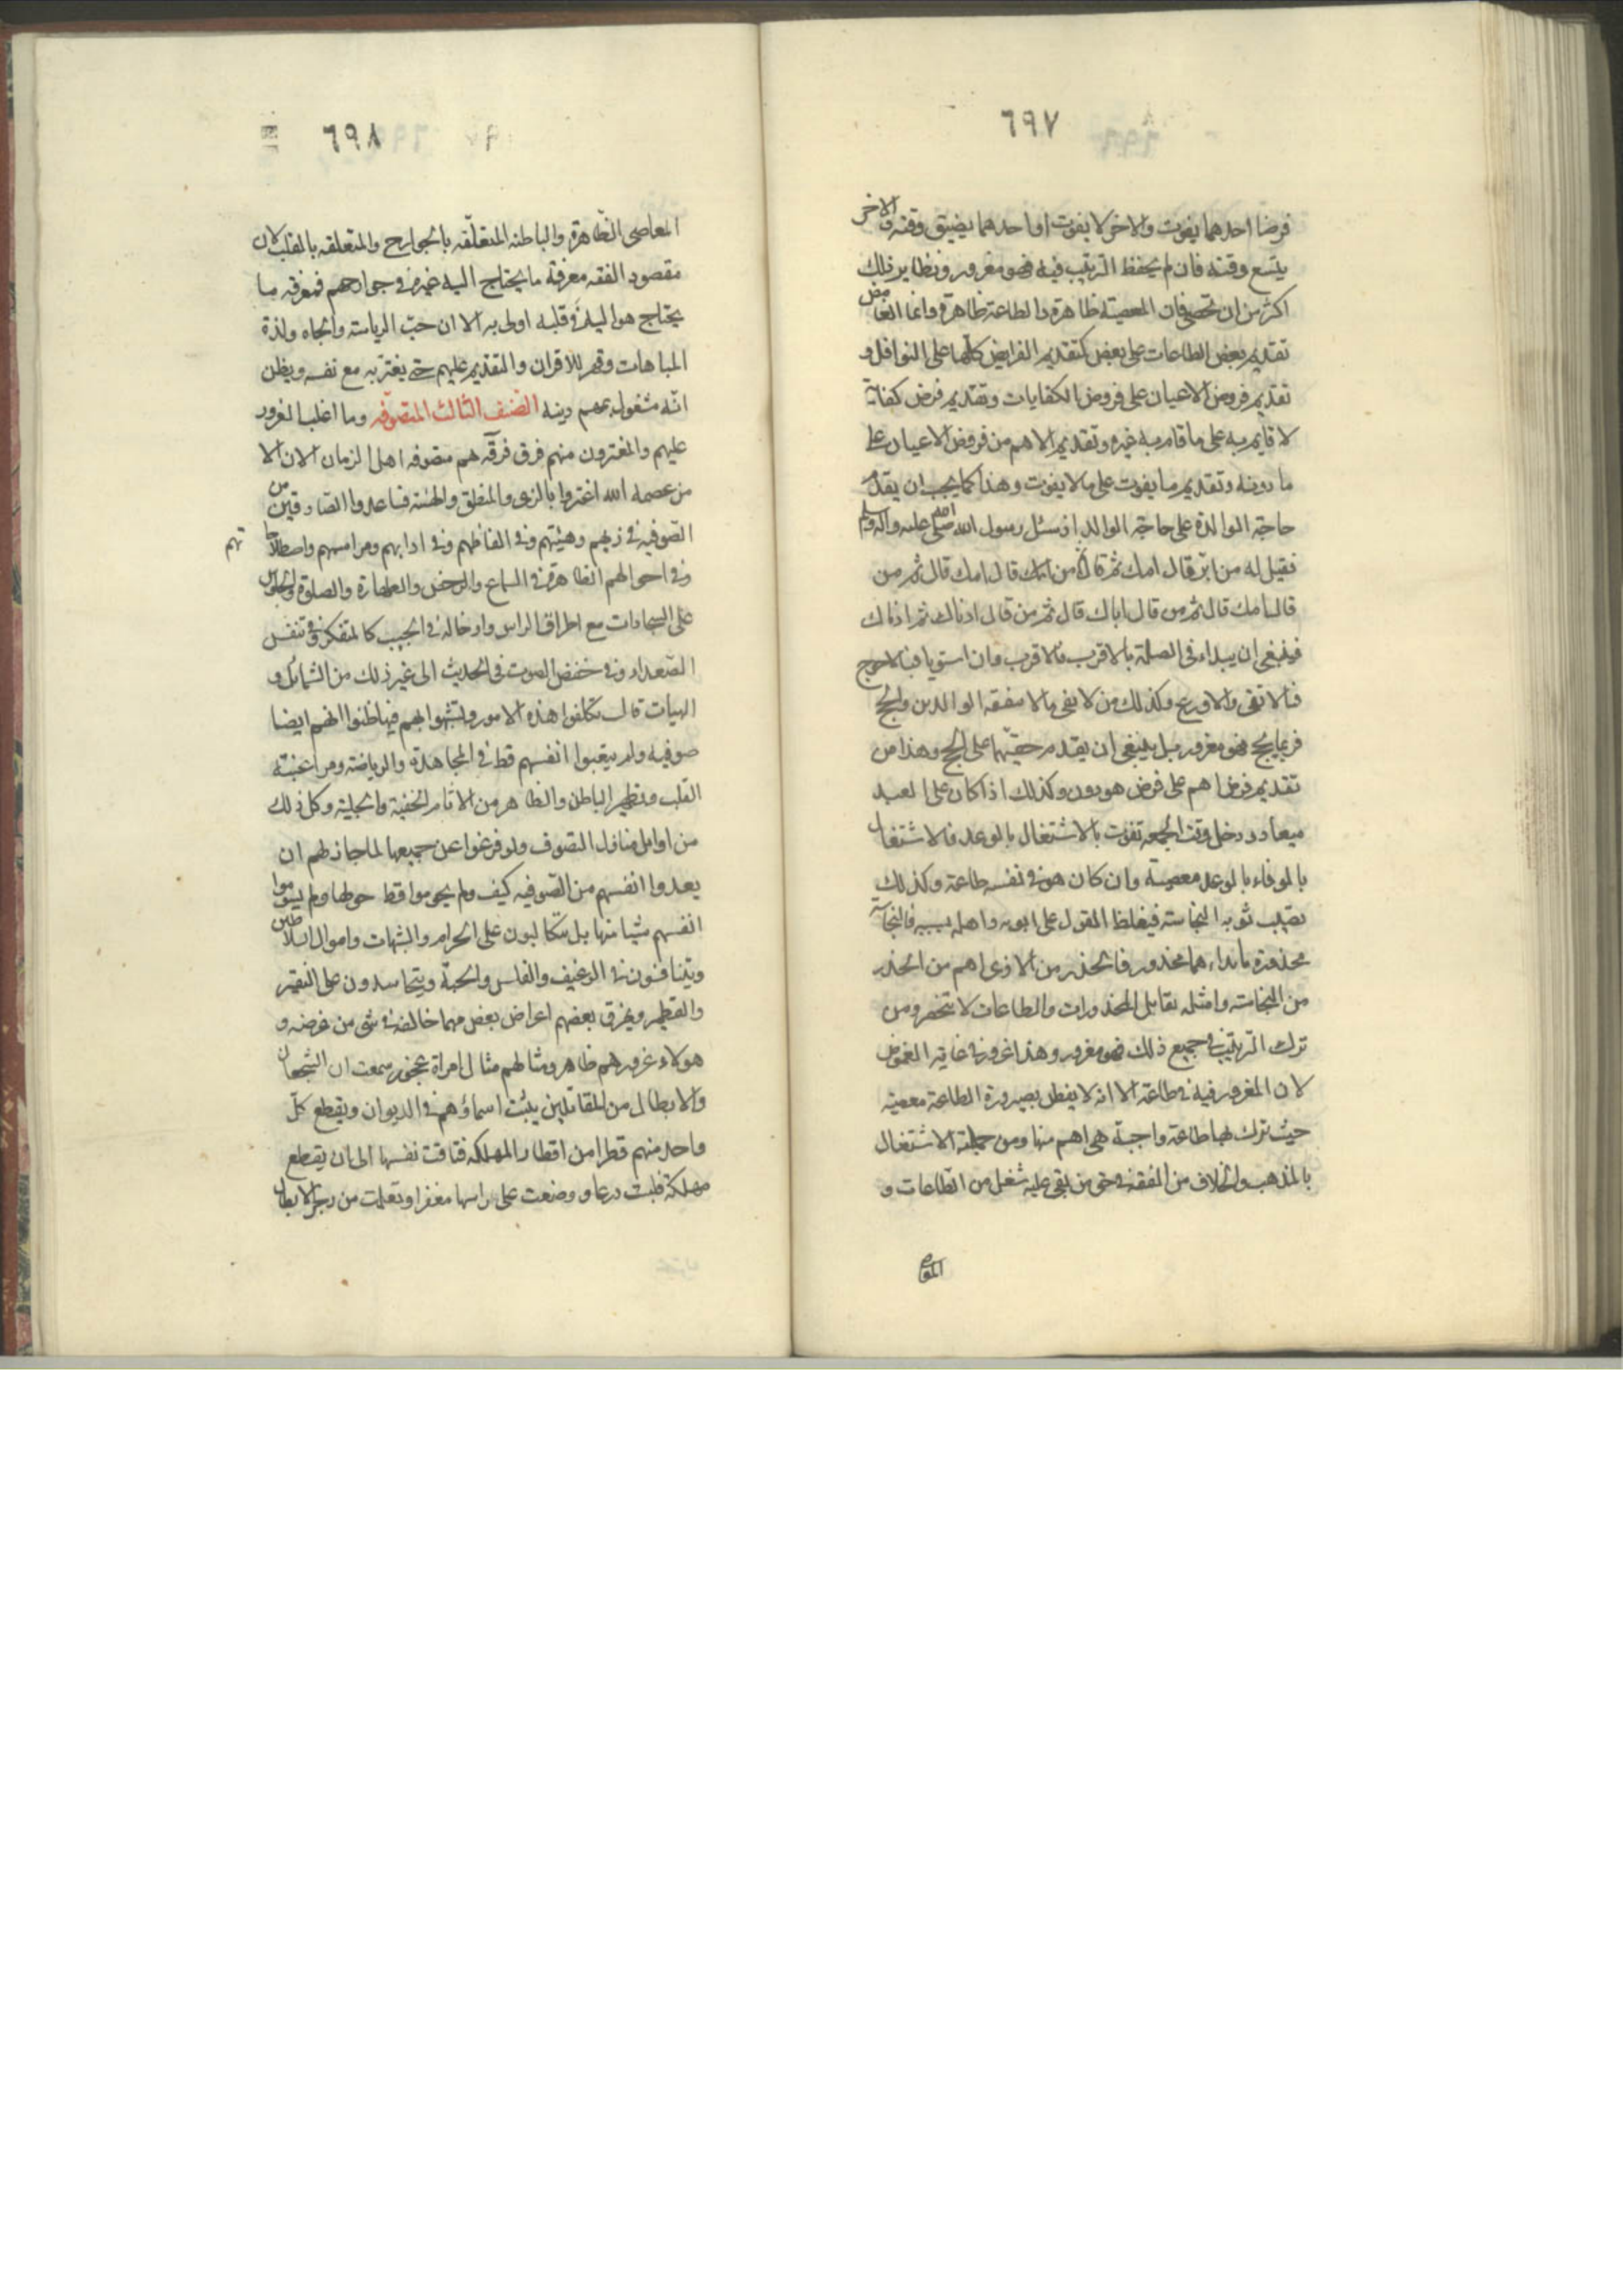 ٦٩٧
فرضا احدهما يفوت والاخر لا يفوت او احدهما يضيق وقته و الاخر
يتسع وقته فان لم يحفظ الترتيب فيه فهو مغرور ونظاير ذلك
اكثر من ان تحصى فان المعصية ظاهرة والطاعة ظاهرة وانما الغامض
تقديم بعض الطاعات على بعض كتقديم الفرايض كلها على النوافل و
تقديم فروض الاعيان على فروض الكفايات وتقديم فرض كفاية
لا قايم به على ما قام به غيره وتقديم الاهم من فروض الاعيان على
ما دونه وتقديم ما يفوت على ما لا يفوت وهذا كما يجب ان يقدم
حاجة الوالدة على حاجة الوالد اذ سئل رسول الله صلى الله عليه واله وسلم
فقيل له من ابر قال امك ثم قال من قال امك قال ثم من
قال امك قال ثم من قال اباك قال ثم من قال ادناك ثم ادناك
فينبغى ان يبداء فى الصلة بالاقرب فالاقرب فان استويا فبالاحوج
فالاتقى والاورع وكذلك من لا يفى ماله بنفقة الوالدين والحج
فربما يحج فهو مغرور بل ينبغى ان يقدم حقهما على الحج وهذا من
تقديم فرض اهم على فرض هو دون وكذلك اذا كان على العبد
ميعاد ودخل وقت الجمعه تفوت بالاشتغال بالوعد فالاشتغال
بالوفاء بالوعد معصية وان كان هو فى نفسه طاعة وكذلك
تصيب ثوبه النجاسة فيغلظ القول على ابويه واهله بسببه فالنجاسة
محذورة وايذاءهما محذور فالحذر من الاذى اهم من الحذر
من النجاسة وامثلة تقابل المحذورات والطاعات لا تنحصر ومن
ترك الترتيب فى جميع ذلك فهو مغرور وهذا غرور فى غاية الغموض
لان المغرور فيه فى طاعة الا انه لا يفطن بصيرورة الطاعة معصية
حيث ترك بها طاعة واجبة هى اهم منها ومن جملته الاشتغال
بالمذهب والخلاف من الفقه فى حق من بقى عليه شغل من الطاعات و
٦٩٨
المعاصى الظاهرة والباطنة المتعلقة بالجوارح والمتعلقة بالقلب لان
مقصود الفقه معرفة ما يحتاج اليه غيره فى جوارحهم فمعرفة ما
يحتاج هو اليه فى قلبه اولى به الا ان حب الرياسة والجاه ولذة
المباهات وقهر الاقران والتقديم عليهم حتى يغتر به مع نفسه ويظن
انه مشغول بهم دينه الصنف الثالث المتصوفه وما اغلب الغرور
عليهم والمغترون منهم فرق فرقة هم متصوفه اهل الزمان الان الا
من عصمه الله اغتروا بالزى والمنطق والهيئة فساعدوا الصادقين من
الصوفيه فى زيهم وهيئتهم وفى الفاظهم وفى ادابهم ومراسمهم واصطلاحا تهم
وفى احوالهم الظاهرة فى السماع والرقص والطهارة والصلوة والجلوس
على السجادات مع اطراق الراس وادخاله فى الجيب كالمتفكر وفى تنفس
الصعداء وفى خفض الصوت فى الحديث الى غير ذلك من الشمائل و
الهيات قال تكلفوا هذه الامور وتشبهوا بهم فيها ظنوا انهم ايضا
صوفيه ولم يتعبوا انفسهم قط فى المجاهدة والرياضة ومراقبة
القلب وتطهير الباطن والظاهر من الاثام الخفية والجلية وكل ذلك
من اوايل منازل التصوف ولو فرغوا عن جميعها لما جاز لهم ان
يعدوا انفسهم من الصوفيه كيف ولم يحوموا قط حولها ولم يسوموا
انفسهم شيئا منها بل يتكالبون على الحرام والشبهات واموال السلاطين
ويتنافسون فى الرغيف والفلس والحبة ويتحاسدون على النقير
والقطمير ويمزق بعضهم اعراض بعض مهما خالفه فى شئ من غرضه و
هولاء غرورهم ظاهر ومثالهم مثال امراة عجوز سمعت ان الشجعان
والابطال من المقاتلين يثبت اسماؤهم فى الديوان ويقطع كل
واحد منهم قطرا من اقطار المملكة فتاقت نفسها الى ان يقطع
مملكة فلبست درعا و وضعت على راسها مغفرا وتعلمت من رجز الابطال